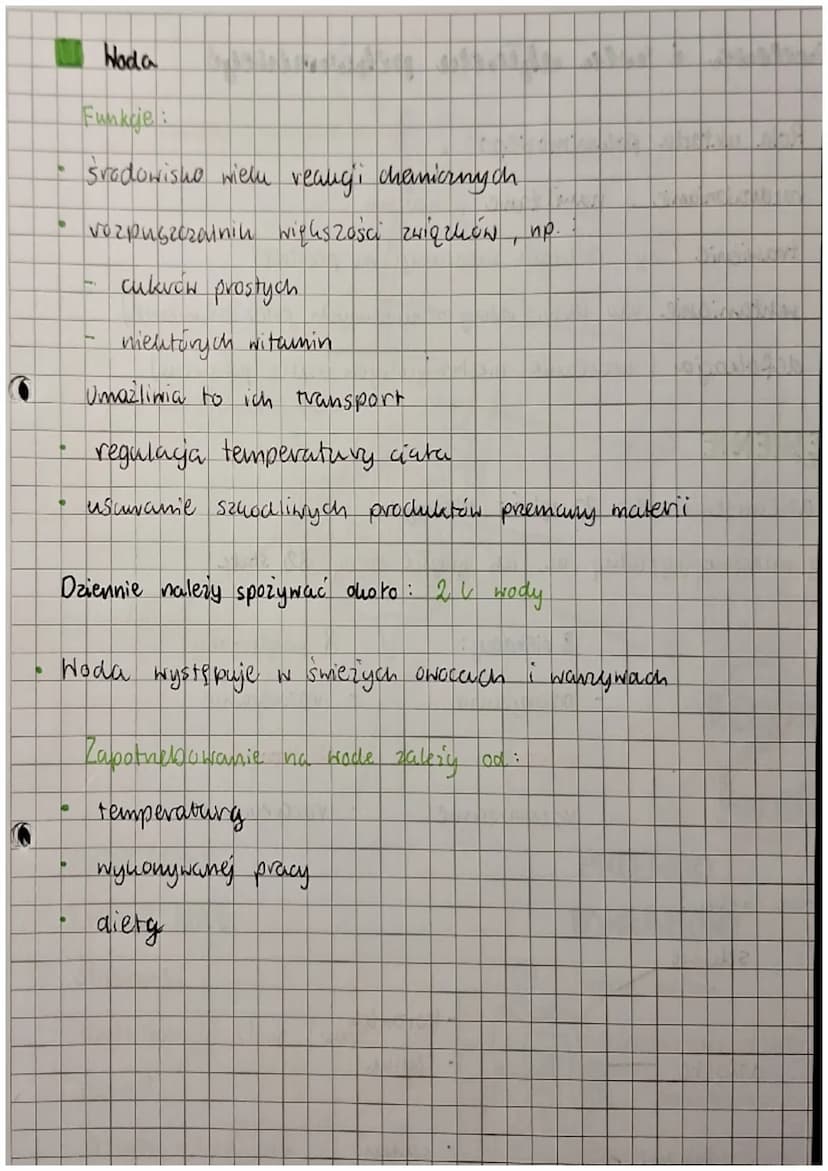 Woda
Funkcje:
• środowisko wielu reakcji chemicznych
• rozpuszczalnik większości związków, np.:
- cukrów prostych
- niektórych witamin
Umożliwia to ich transport
• regulacja temperatury ciała
• usuwanie szkodliwych produktów przemiany materii
Dziennie należy spożywać około: 2 l wody
• Woda występuje w świeżych owocach i warzywach
Zapotrzebowanie na wodę zależy od:
• temperatury
• wykonywanej pracy
• diety